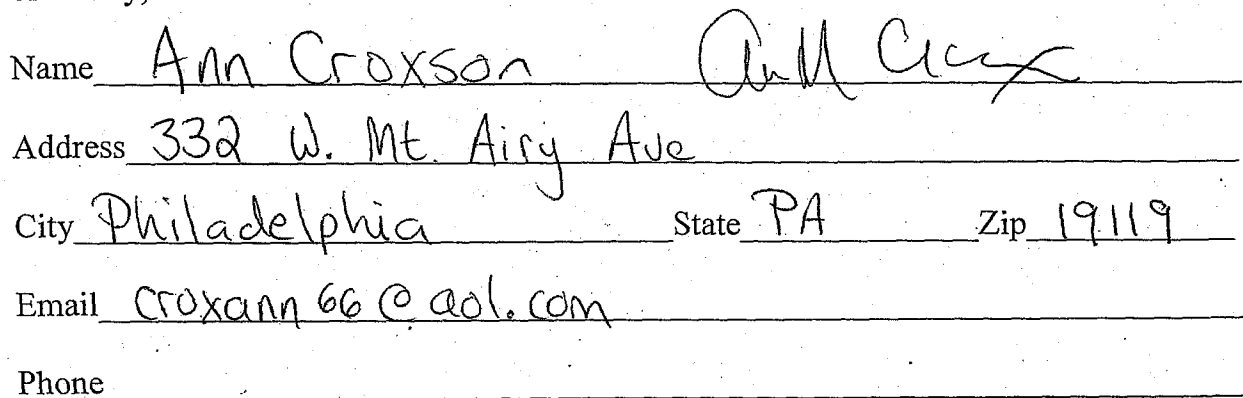 Name Ann Croxson
Address 332 W. Mt. Airy Ave
City Philadelphia State PA Zip 19119
Email croxann66@aol.com
Phone